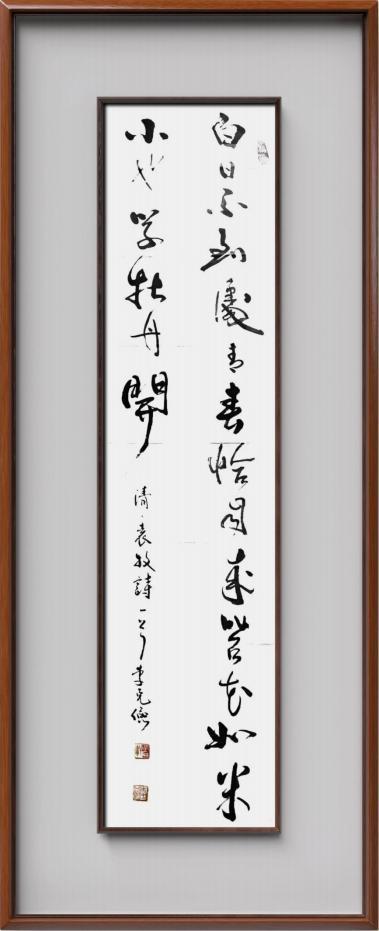 白日不到處青春恰自來苔花如米
小也學牡丹開 清袁牧詩一首 李元